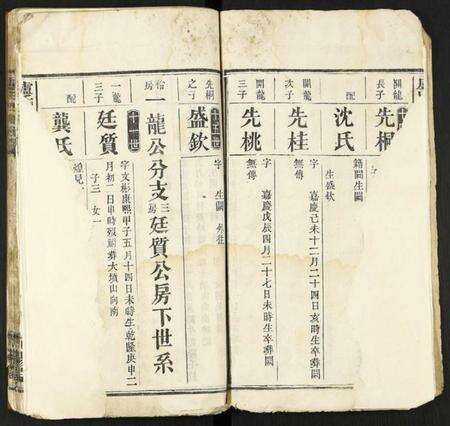 關龍
長子
先桐
籍關生關
配
沈氏
生盛欽
關龍
次子
先桂
字 嘉慶己未十二月二十四日亥時生卒葬關
無傳
關龍
三子
先桃
字 嘉慶戊辰四月二十七日未時生卒葬關
無傳
先桐
之子
盛欽
字 生關 外往
一龍公分支三房廷質公房下世系
一龍
三子
十一世
廷質
字文彬康熙甲子五月十四日未時生乾隆庚申二
月初一日申時歿葬大墳山向南
子三 女一
配
龔氏